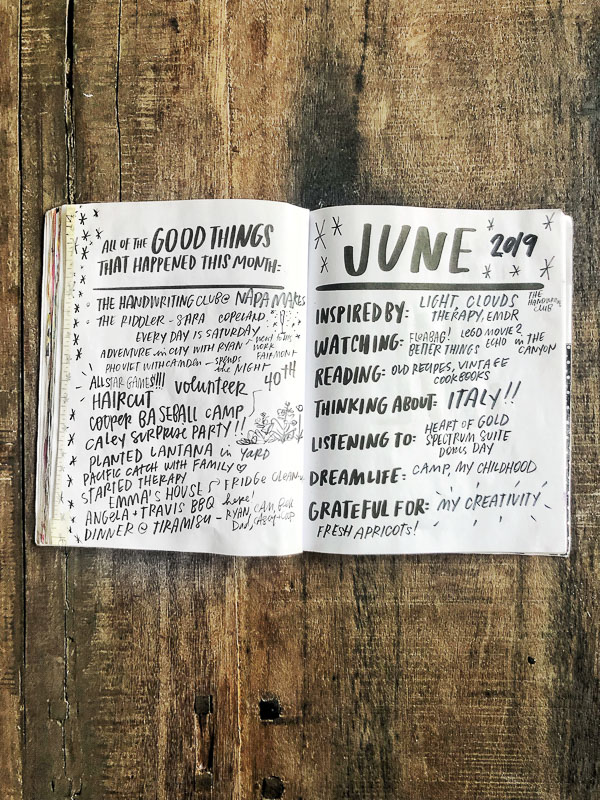 ALL OF THE GOOD THINGS
THAT HAPPENED THIS MONTH:
THE HANDWRITING CLUB @ NAPA MAKES
THE RIDDLER - SARA COPELAND
EVERY DAY IS SATURDAY
ADVENTURE in CITY WITH RYAN
WORK
FAIRMONT
PHO VIET WITH CAMDEN - SPENDS
the NIGHT
ALL STAR GAMES!!!
HAIRCUT
volunteer
40TH
COOPER BASEBALL CAMP
CALEY SURPRISE PARTY!!
PLANTED LANTANA in YARD
PACIFIC CATCH WITH FAMILY ♡
STARTED THERAPY
FRIDGE
EMMA'S HOUSE
ANGELA + TRAVIS BBQ here!
DINNER @ TIRAMISU - RYAN, CAM,
Dad,
JUNE 2019
INSPIRED BY: LIGHT, CLOUDS
THERAPY, EMDR
THE
HANDWRITING
CLUB
WATCHING: FLEABAG! LEGO MOVIE 2
BETTER THINGS ECHO in THE
CANYON
READING: OLD RECIPES, VINTAGE
COOKBOOKS
THINKING ABOUT: ITALY!!
LISTENING TO: HEART OF GOLD
SPECTRUM SUITE
DONUS DAY
DREAM LIFE: CAMP, MY CHILDHOOD
GRATEFUL FOR: MY CREATIVITY
FRESH APRICOTS!